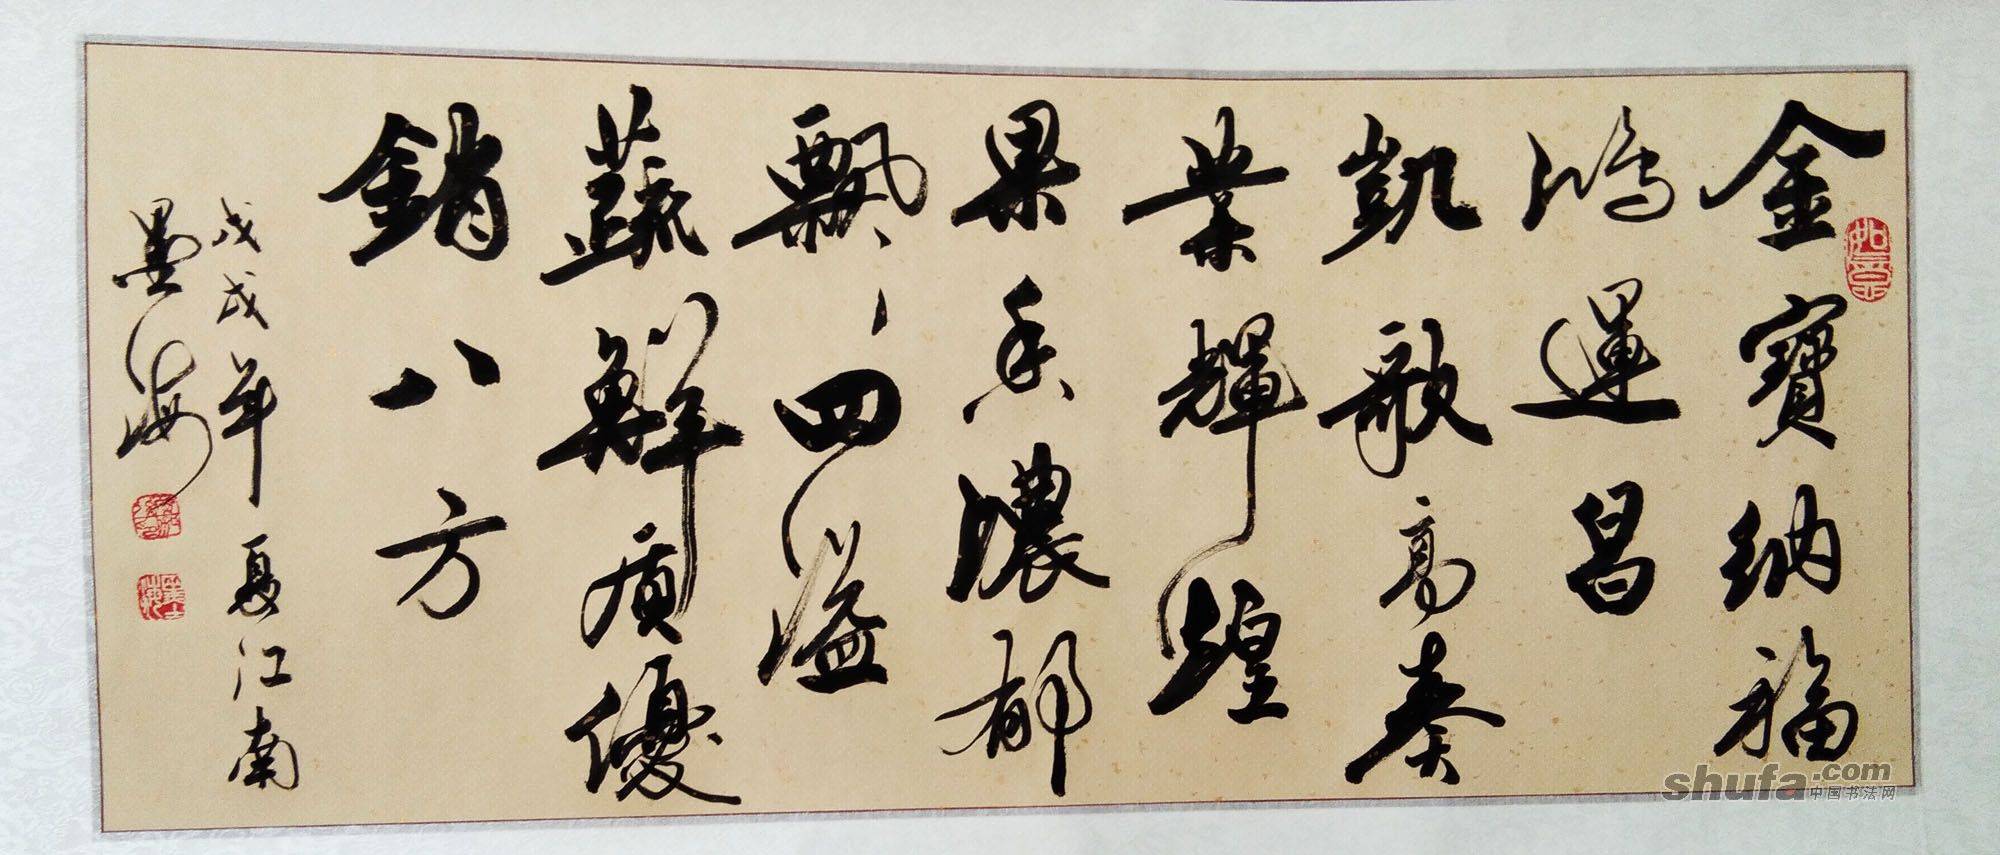 金寶納福
鴻運昌
凱歌高奏
業輝煌
果香濃郁
飄四溢
蔬鮮質優
銷八方
戊戌年夏江南
墨海
如意
shufa.com
中国书法网